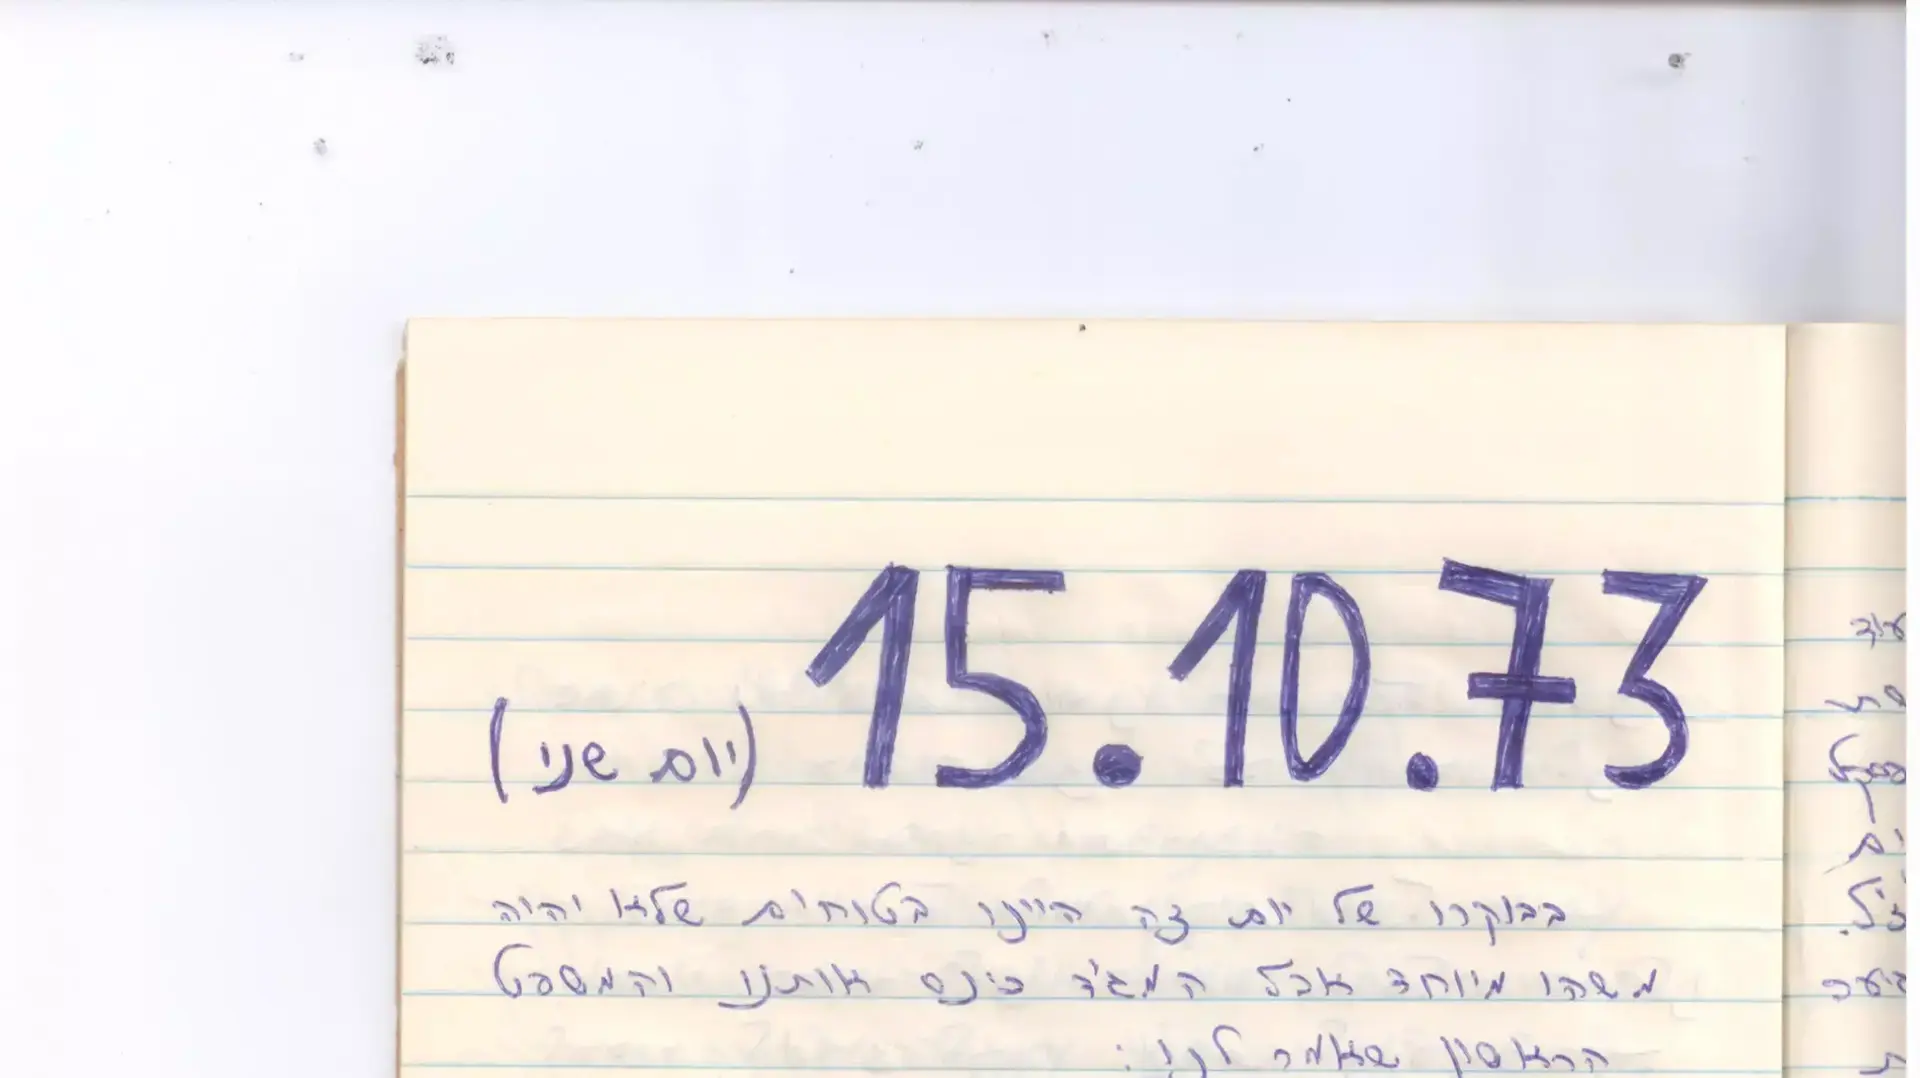 15.10.73 (יום שני)
בבוקרו של יום זה היינו בטוחים שלא יהיה
משהו מיוחד אבל המג"ד כינס אותנו והמשפט
הראשון שאמר לנו:
עוד